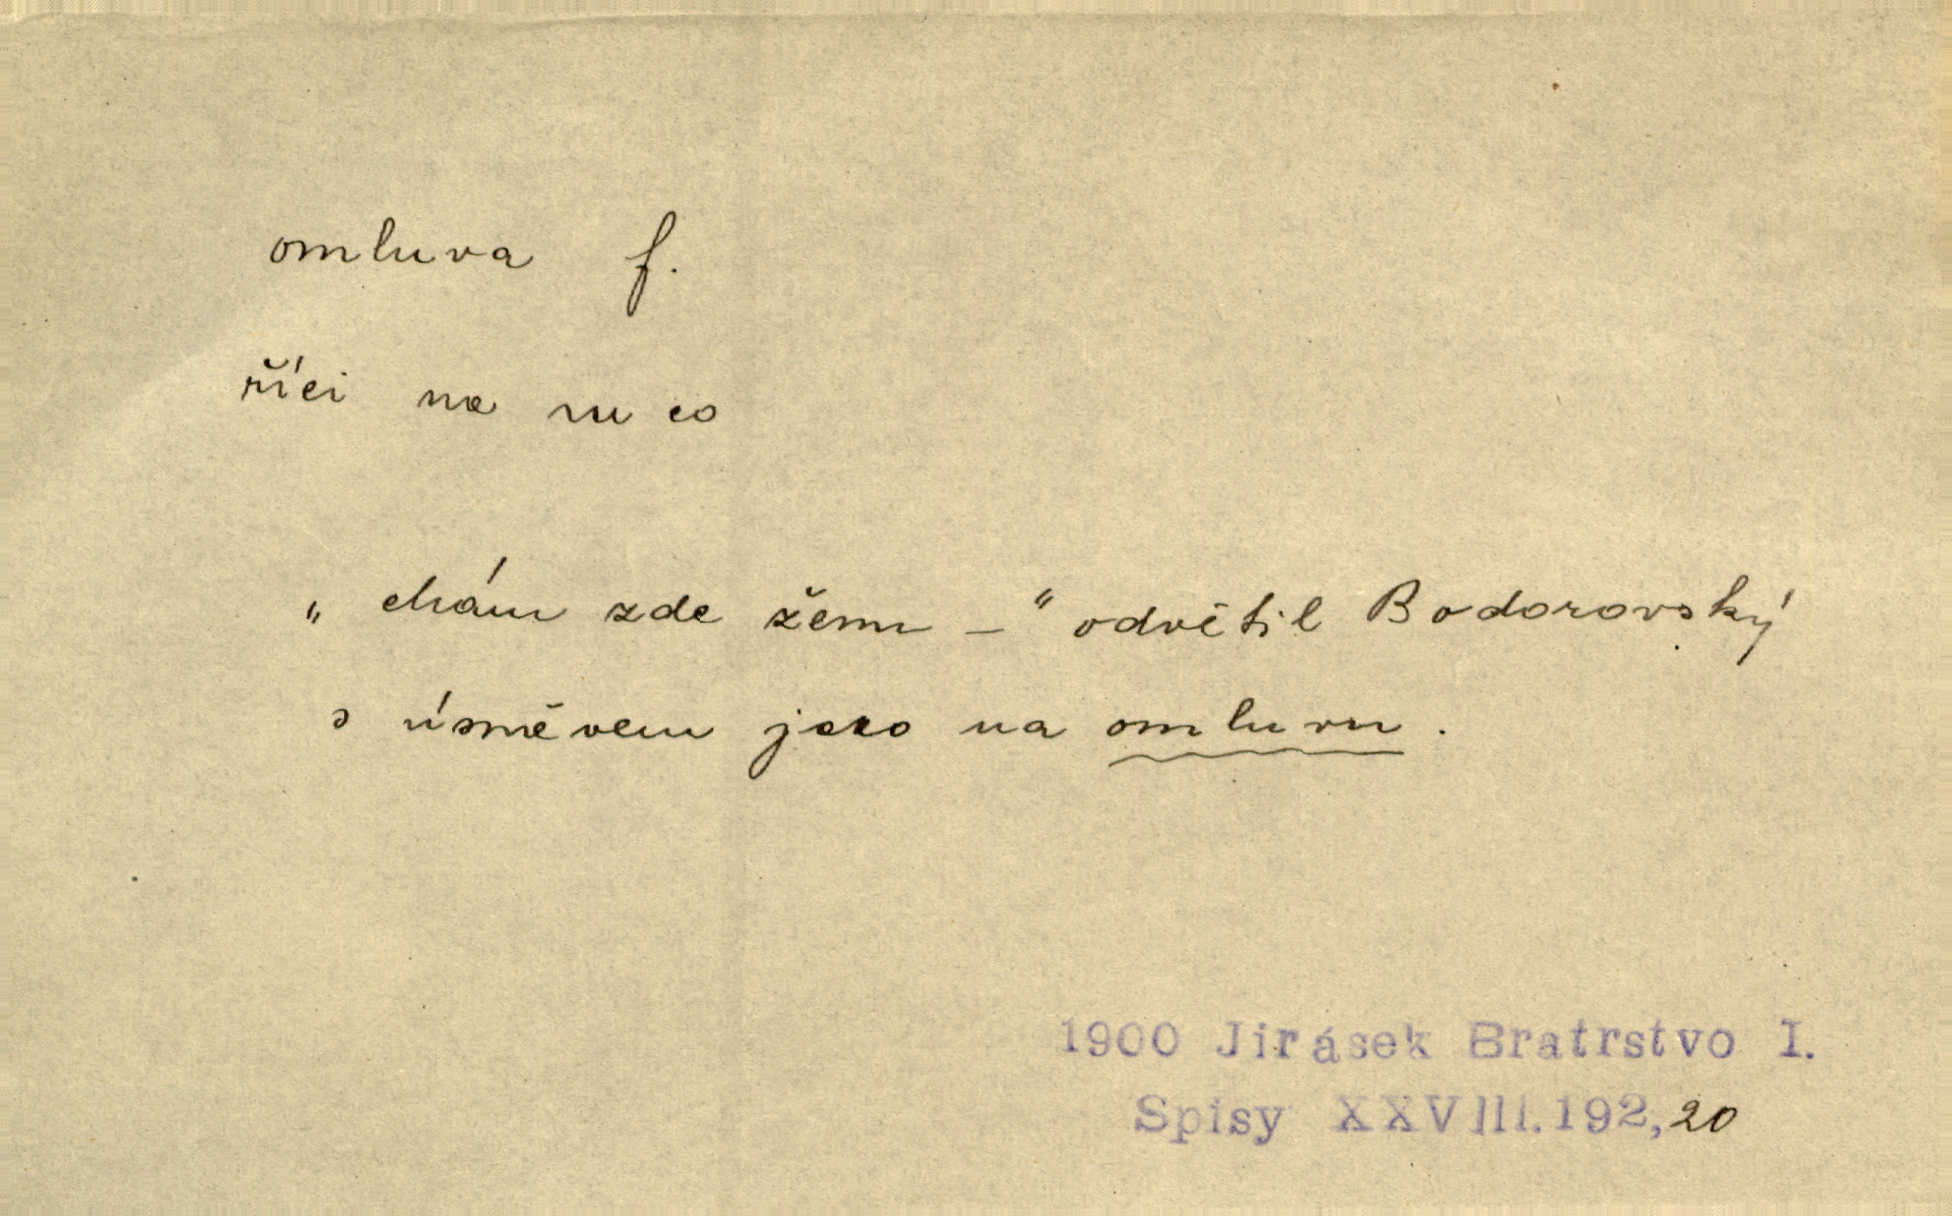 omluva f.
říci na vu co
„ Mám zde ženu – “ odvětil Bodorovský
s úsměvem jako na omluvu .
1900 Jirásek Bratrstvo I.
Spisy XXVIII.192,20